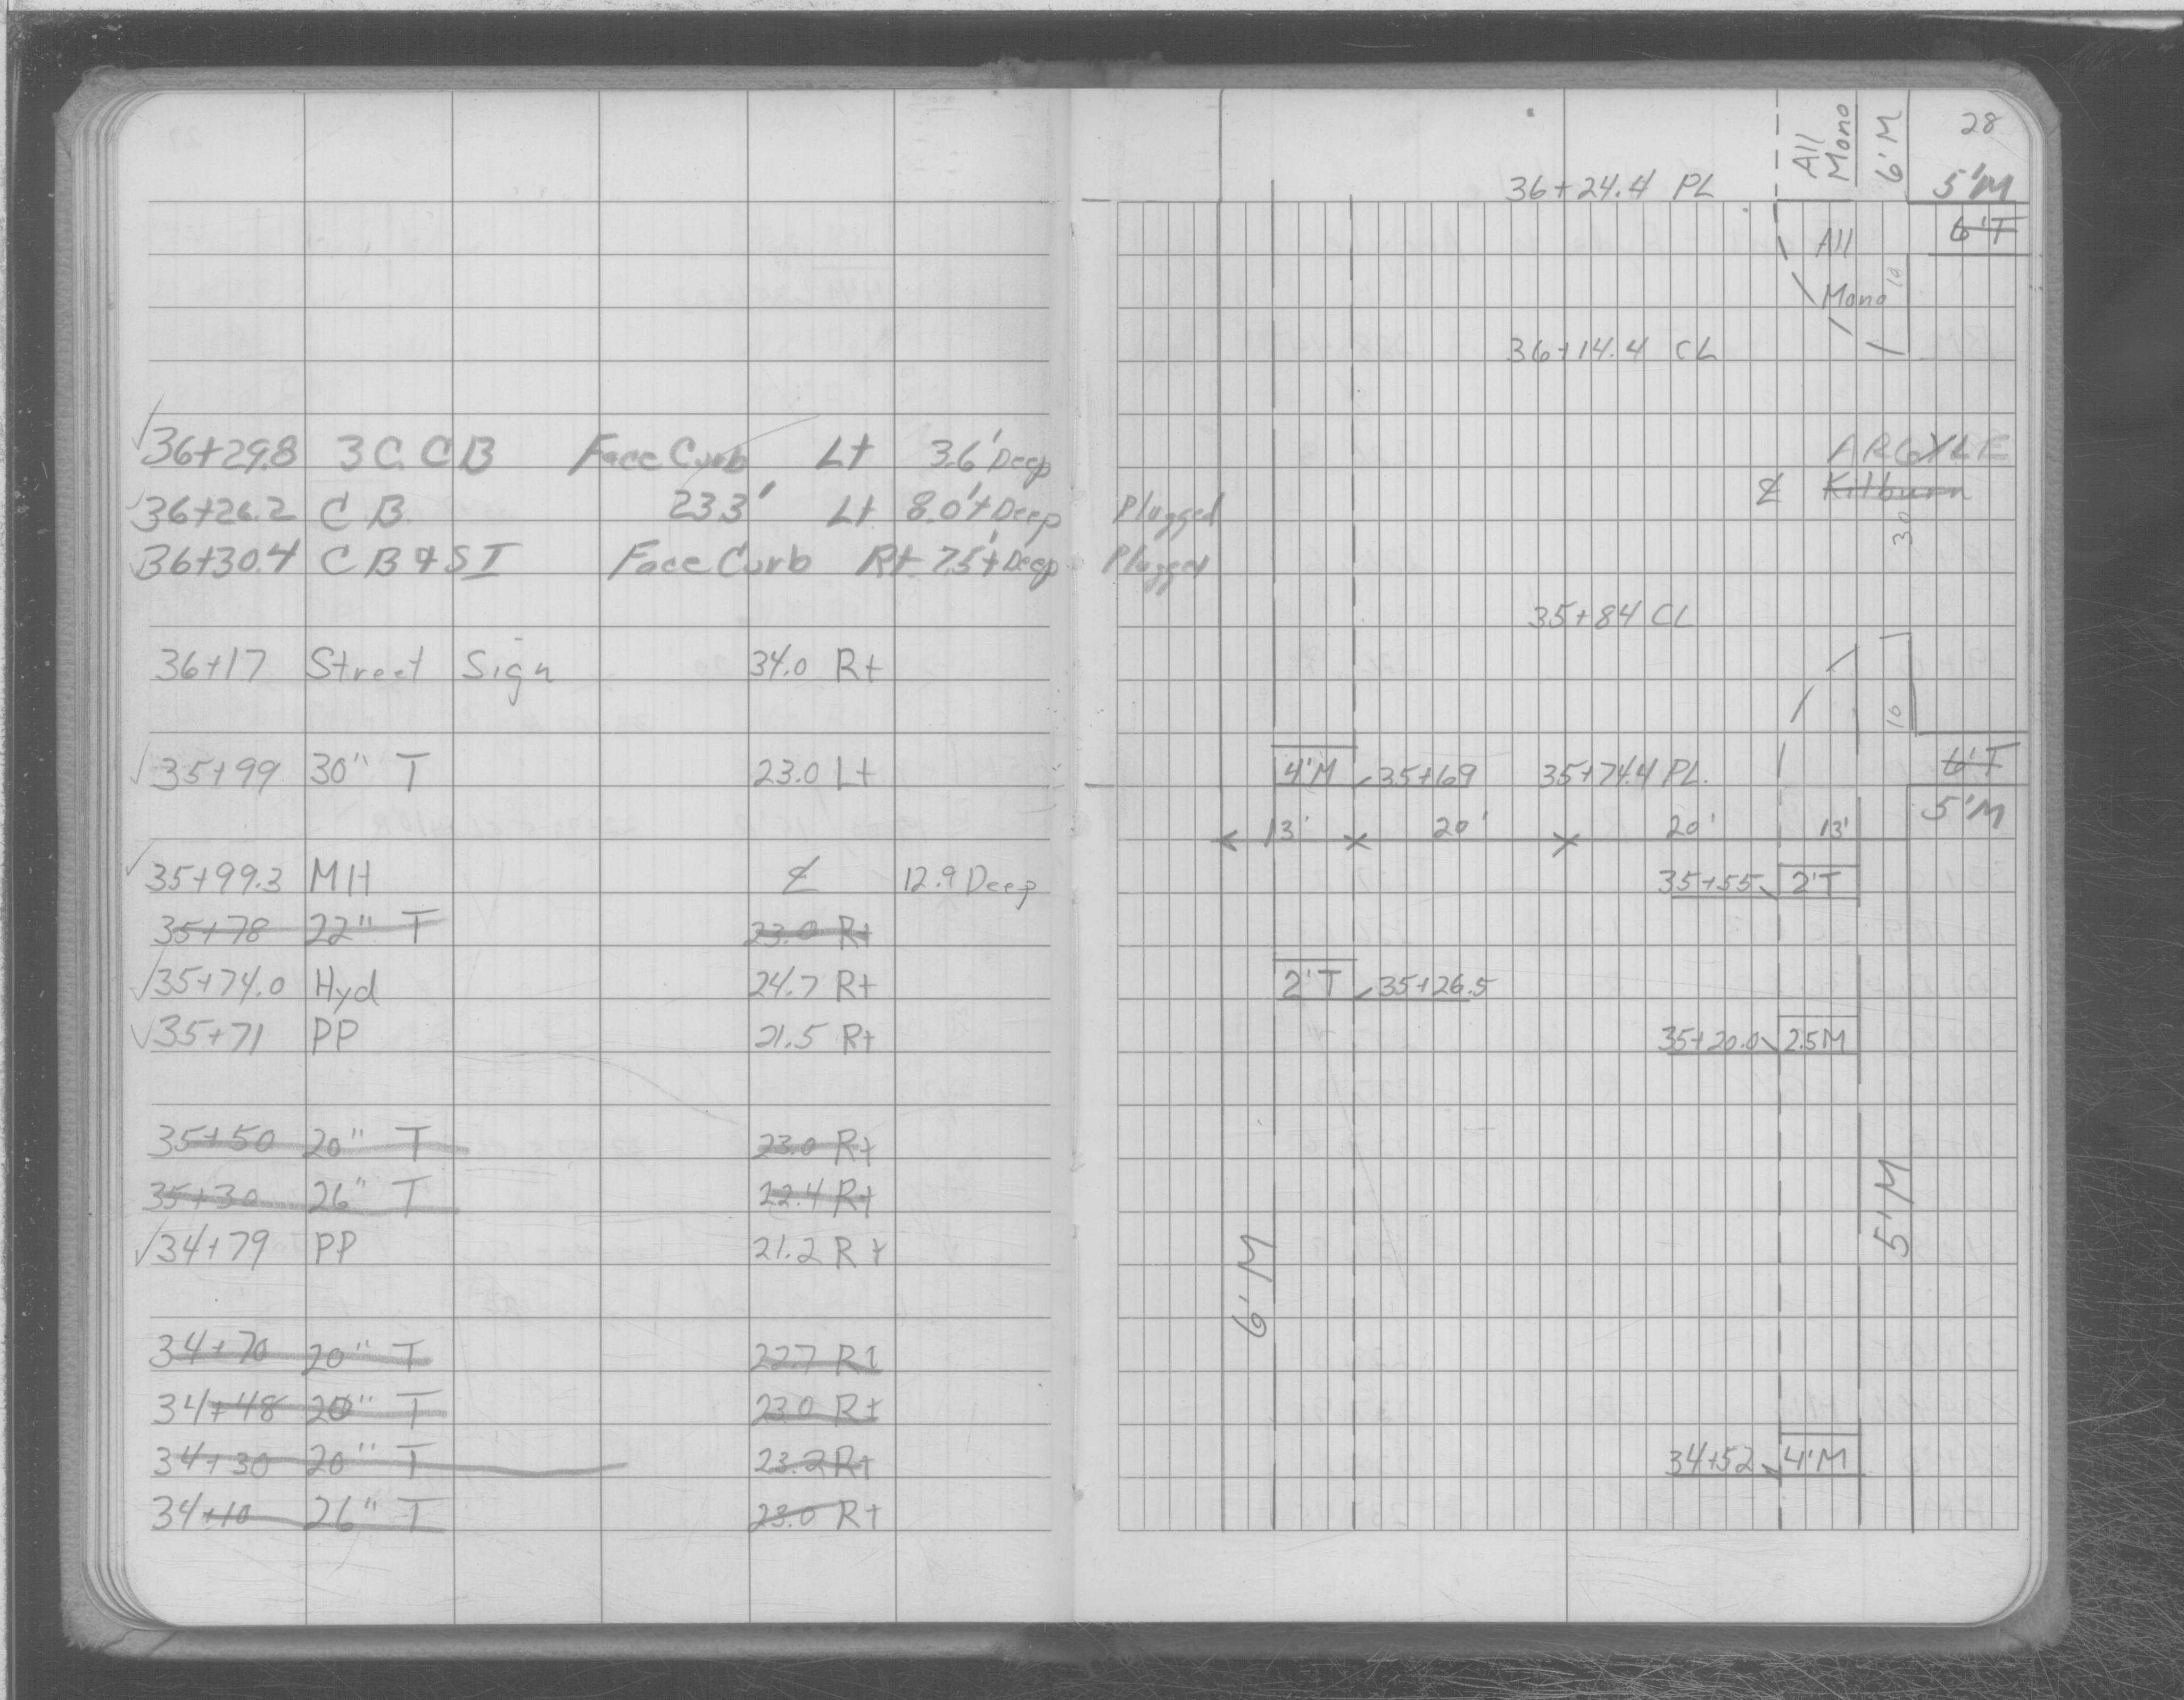 ✓36+29.8 3 C. C B Face Curb Lt 3.6' Deep
✓36+26.2 C B 23.3' Lt 8.0'± Deep Plugged
✓36+30.4 C B & S I Face Curb Rt 7.5'± Deep Plugged
36+17 Street Sign 34.0 Rt
✓35+99 30" T 23.0 Lt
✓35+99.3 MH ℄ 12.9 Deep
35+78 22" T 23.0 Rt
✓35+74.0 Hyd 24.7 Rt
✓35+71 PP 21.5 Rt
35+50 20" T 23.0 Rt
35+30 26" T 22.4 Rt
✓34+79 PP 21.2 Rt
34+70 20" T 22.7 Rt
34+48 20" T 23.0 Rt
34+30 20" T 23.2 Rt
34+10 26" T 23.0 Rt
28
All
Mono
6'M
36+24.4 PL
5'M
6'T
All
Mono
10
36+14.4 CL
ARGYLE
℄ Kilburn
30
35+84 CL
10
4'M 35+69 35+74.4 PL.
6'T
5'M
13' 20' 20' 13'
35+55 2'T
2'T 35+26.5
35+20.0 2.5M
6'M
5'M
34+52 4'M